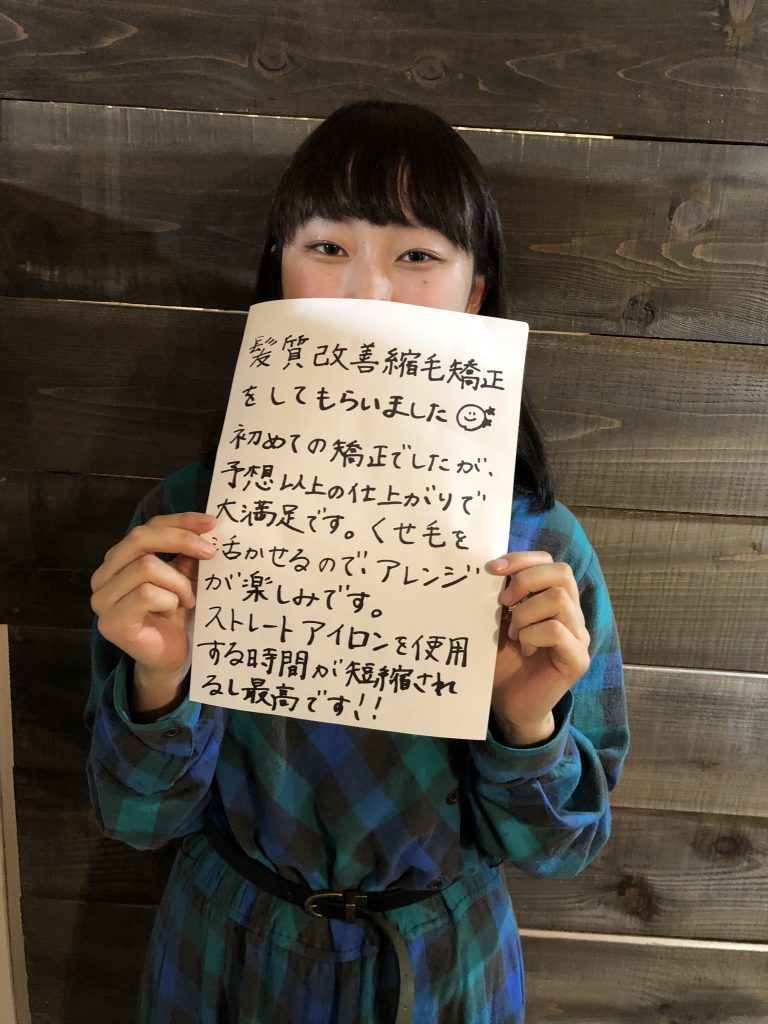 髪質改善縮毛矯正
をしてもらいました
初めての矯正でしたが、
予想以上の仕上がりで
大満足です。くせ毛を
活かせるので、アレンジ
が楽しみです。
ストレートアイロンを使用
する時間が短縮され
るし最高です!!